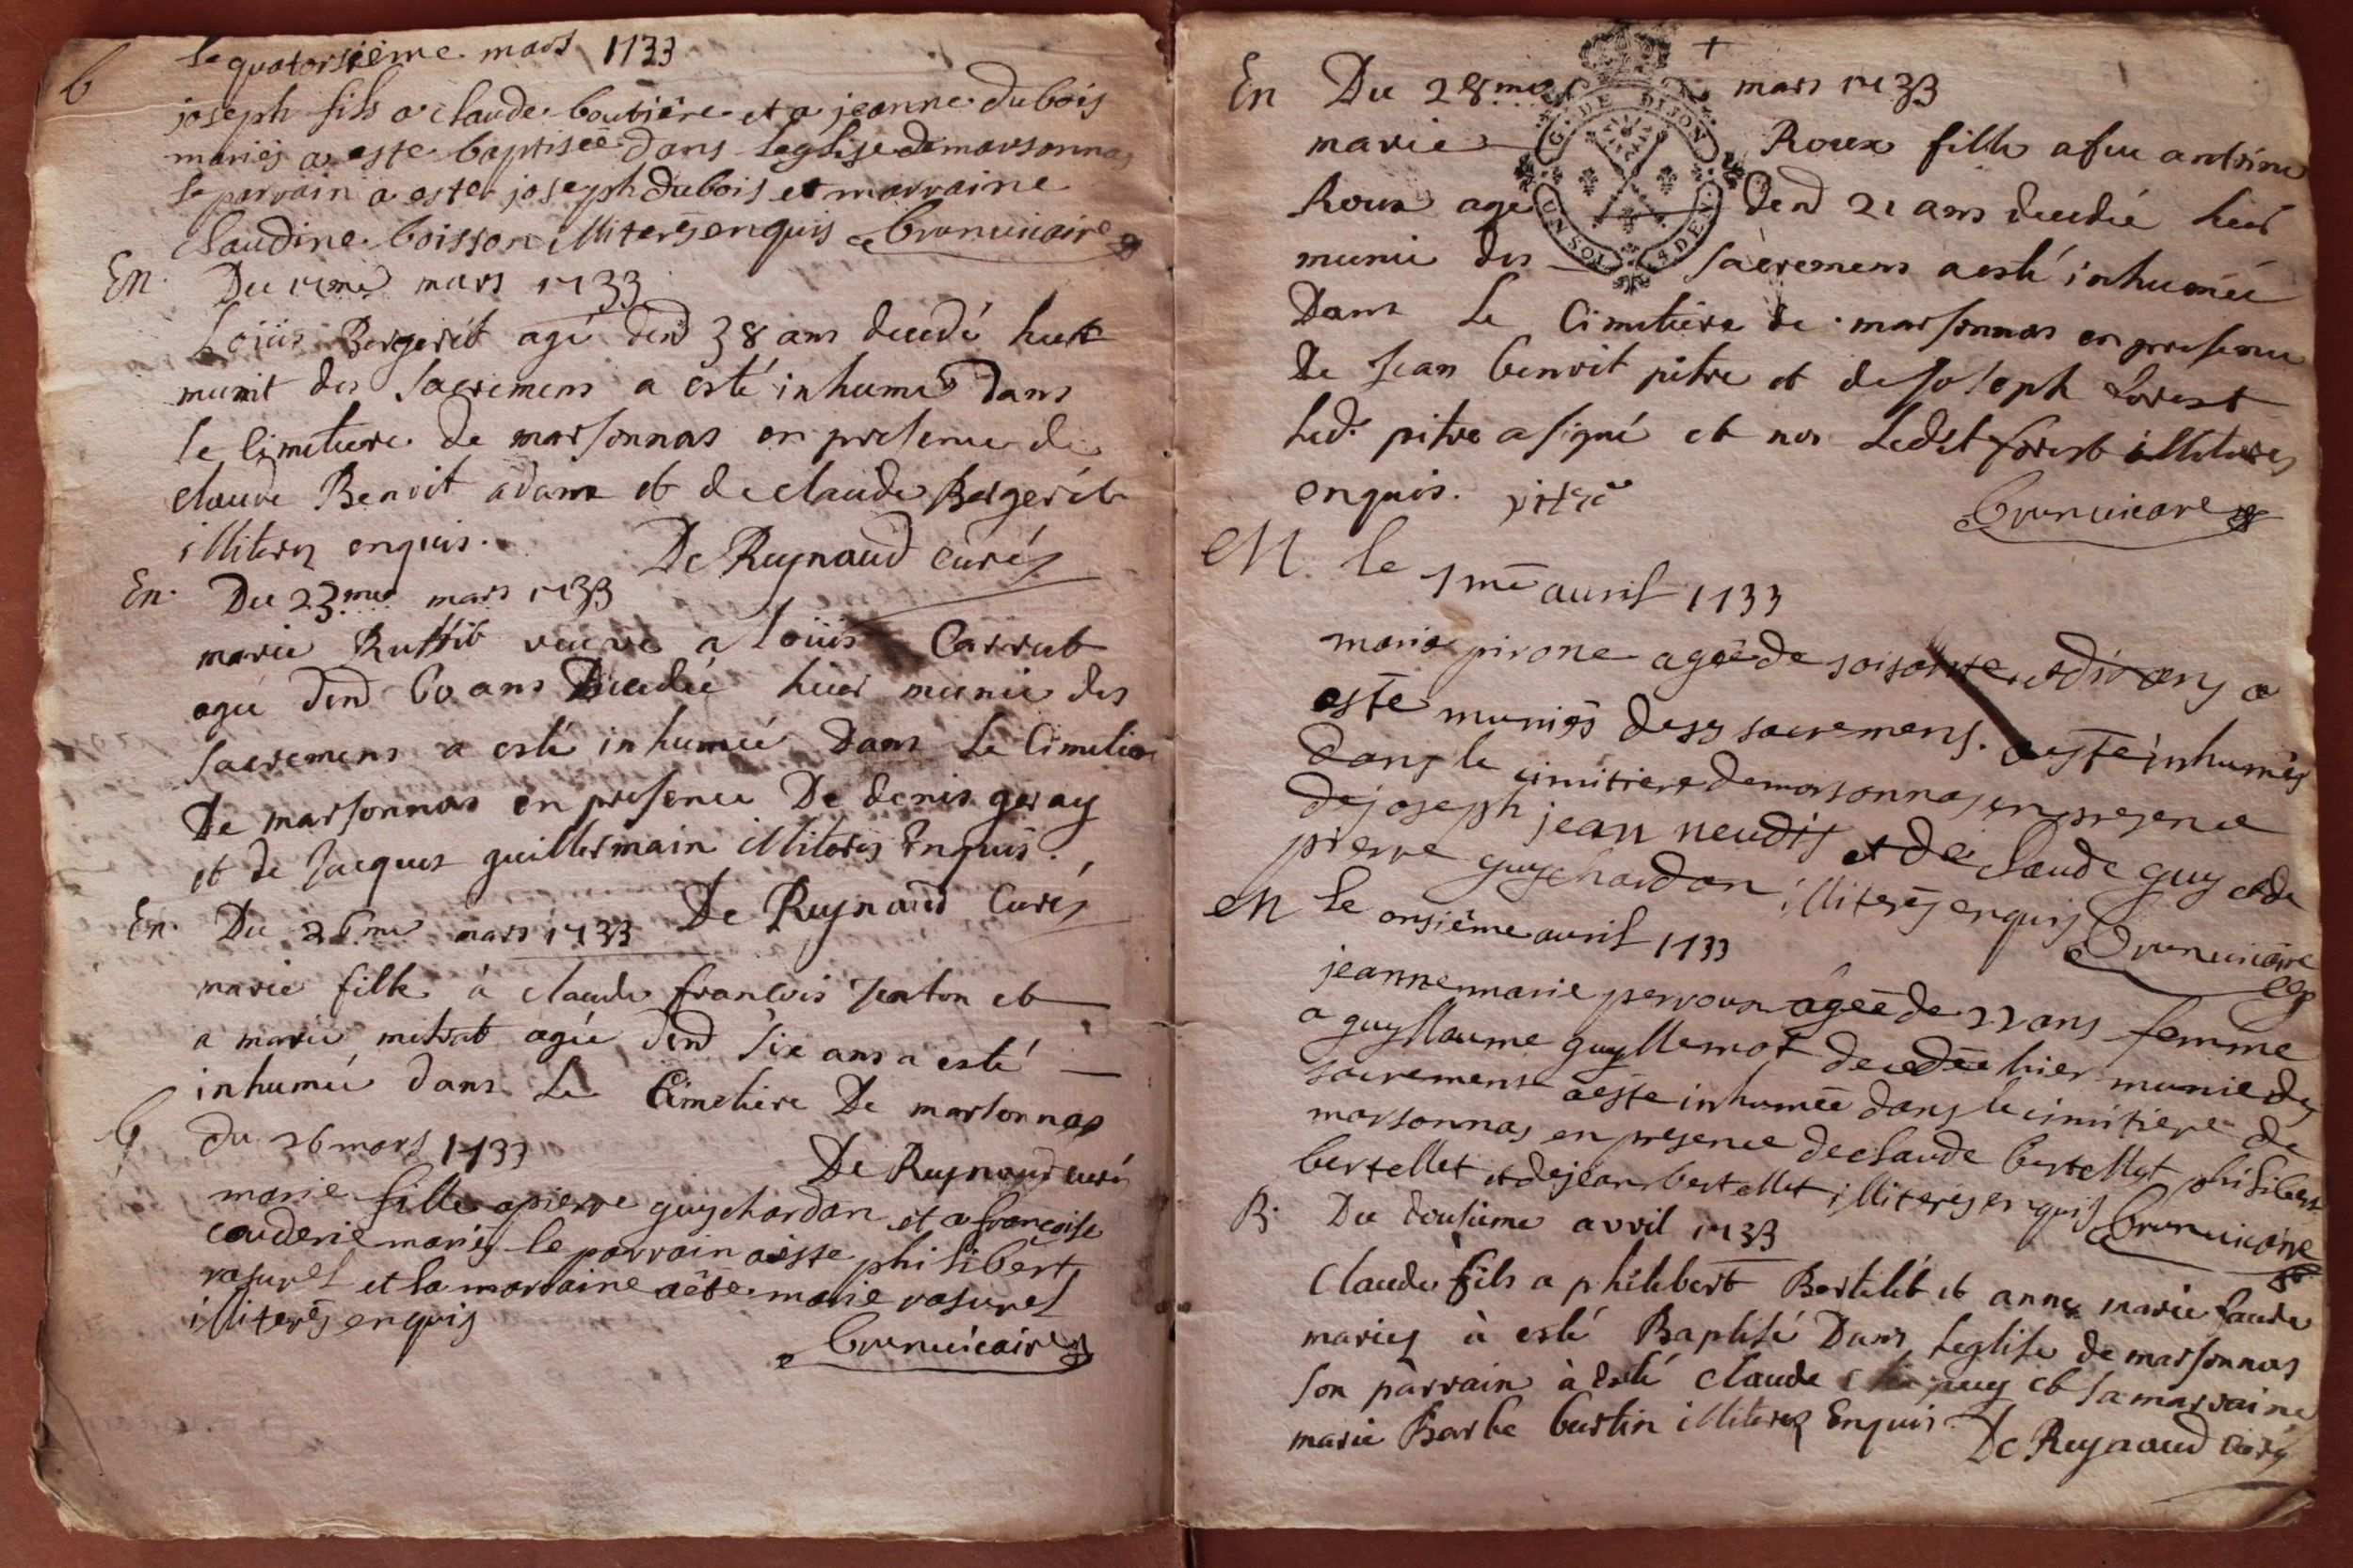 b
le quatorsième mars 1733
joseph fils a claude boutière et a jeanne dubois
mariés a esté baptiseé dans leglise de marsonnas
le parrain a esté joseph dubois et marraine
claudine boisson illiterés enquis brun vicaire
En. Du mars 1733
Loüis Bergerét agé dend 38 ans decedé
munit des Sacremens a esté inhumé dans
le Cimetiere de marsonnas en presence de
claude Benoit adam et de claude Bergerét
illiterez enquis. De Reynaud curé
En. Du 23.me mars 1733
marie veuve a Loüis Carrut
ageé dend 60 ans Decedeé hier munie des
Sacremens a esté inhumeé Dans Le Cimetiere
De marsonnas en presence De denis geray
et de Jacques guillermain illiterés Enquis.
De Reynaud Curé
En. Du 26.me mars 1733
marie fille à claude françois et
a marie metrat ageé dend Six ans a esté
inhumeé dans Le Cimetiere De marsonnas
De Reynaud curé
b du 26 mars 1733
marie fille a pierre guychardan et a françoise
couderie mariés le parrain a esté philibert
rasurel et la marraine a été marie rasurel
illiterés enquis
brun vicaire
+
G. DE DIJON
UN SOL 4 DEN.
En Du 28.me mars 1733
marie Roux fille a feu antoine
Roux agé dend 21 ans decedeé hier
munie des Sacremens a esté inhumeé
Dans Le Cimetiere de marsonnas en presence
De Jean benoit pitre et de Joseph forest
Led. pitre a signé et non Ledit forest illiteres
enquis. pitre
brun vicaire
EN. le 1.me avril 1733
marie pirone ageé de soisante et dix ans a
esté muniés dess sacremens. a esté inhumés
dans le cimitiere de marsonnas en presence
de joseph jean neudis et de claude guy et de
pierre guychardan illiterés enquis
brun vicaire
EN le onsième avril 1733
jeanne marie perroux ageé de 22 ans femme
a guyllaume guyllemot decedeé hier munie des
sacremens a esté inhumeé dans le cimitiere de
marsonnas en presence de claude bertellet philibert
bertellet et de jean bertellet illiterés enquis brun vicaire
B. Du dousieme avril 1733
Claude fils a philibert Bertelét et anne marie
mariez à esté Baptisé Dans Leglise de marsonnas
Son parrain à esté claude puy et Sa marraine
marie Barbe burtin illiterez Enquis De Reynaud curé